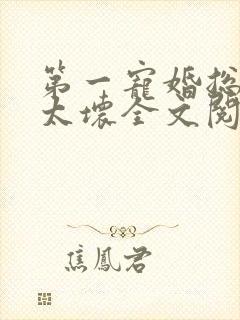 第一寵婚总
太壞全文閱
焦鳳君